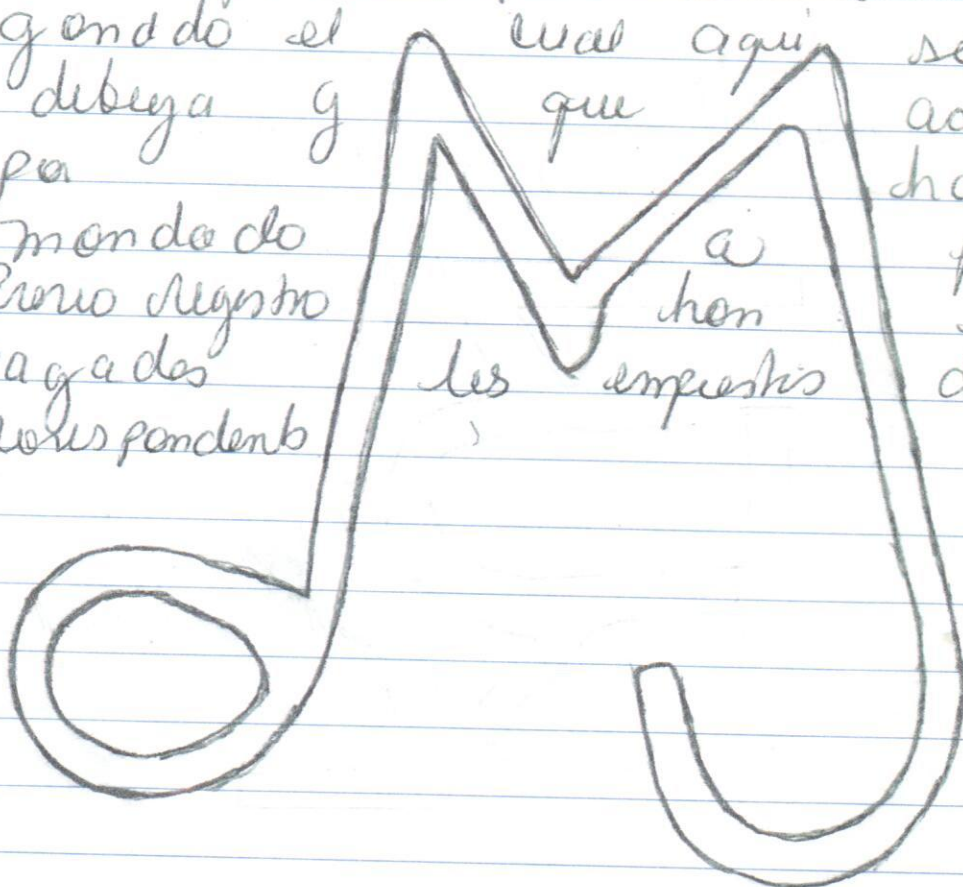 ganddo el cual aqui se
dibuya y que
pa
mondado a
Previo Registro han
agados los empuestos
correspondent